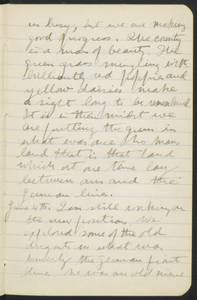 is busy, but we are making
good progress. The country
is a mass of beauty. The
green grass mingling with
brilliantly red poppies and
yellow daisies make
a sight long to be remembered
It is in their midst we
are putting the guns in
what was once No Mans
land that is that land
which at one time lay
between ours and the
German lines.
June 4th. I am still working on
the new position. We
explored some of the old
dugouts in what was
the German front
line. There was an old mine